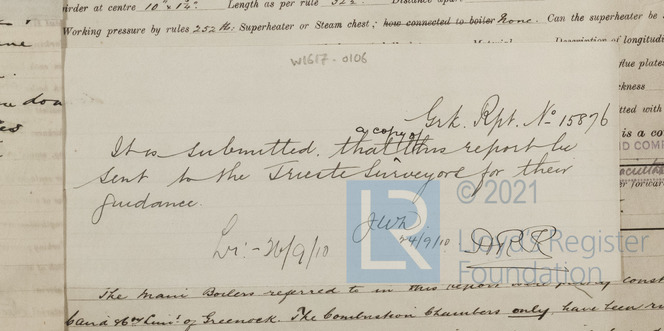 girder at centre 10" x 1½" Length as per rule
Working pressure by rules 252 lb: Superheater or Steam chest; how connected to boiler None. Can the superheater be
Description of longitud
W1617-0106
flue plates
ckness
Grk. Rpt. No 15876
a copy of
It is submitted that this report be
sent to the Trieste Surveyors for their
guidance.
JWh
24/9/10
Lr:- 26/9/10
© 2021
LR
Lloyd's Register
Foundation
The Main Boilers referred to in this report were
of Greenock. The Combustion Chambers only, have been